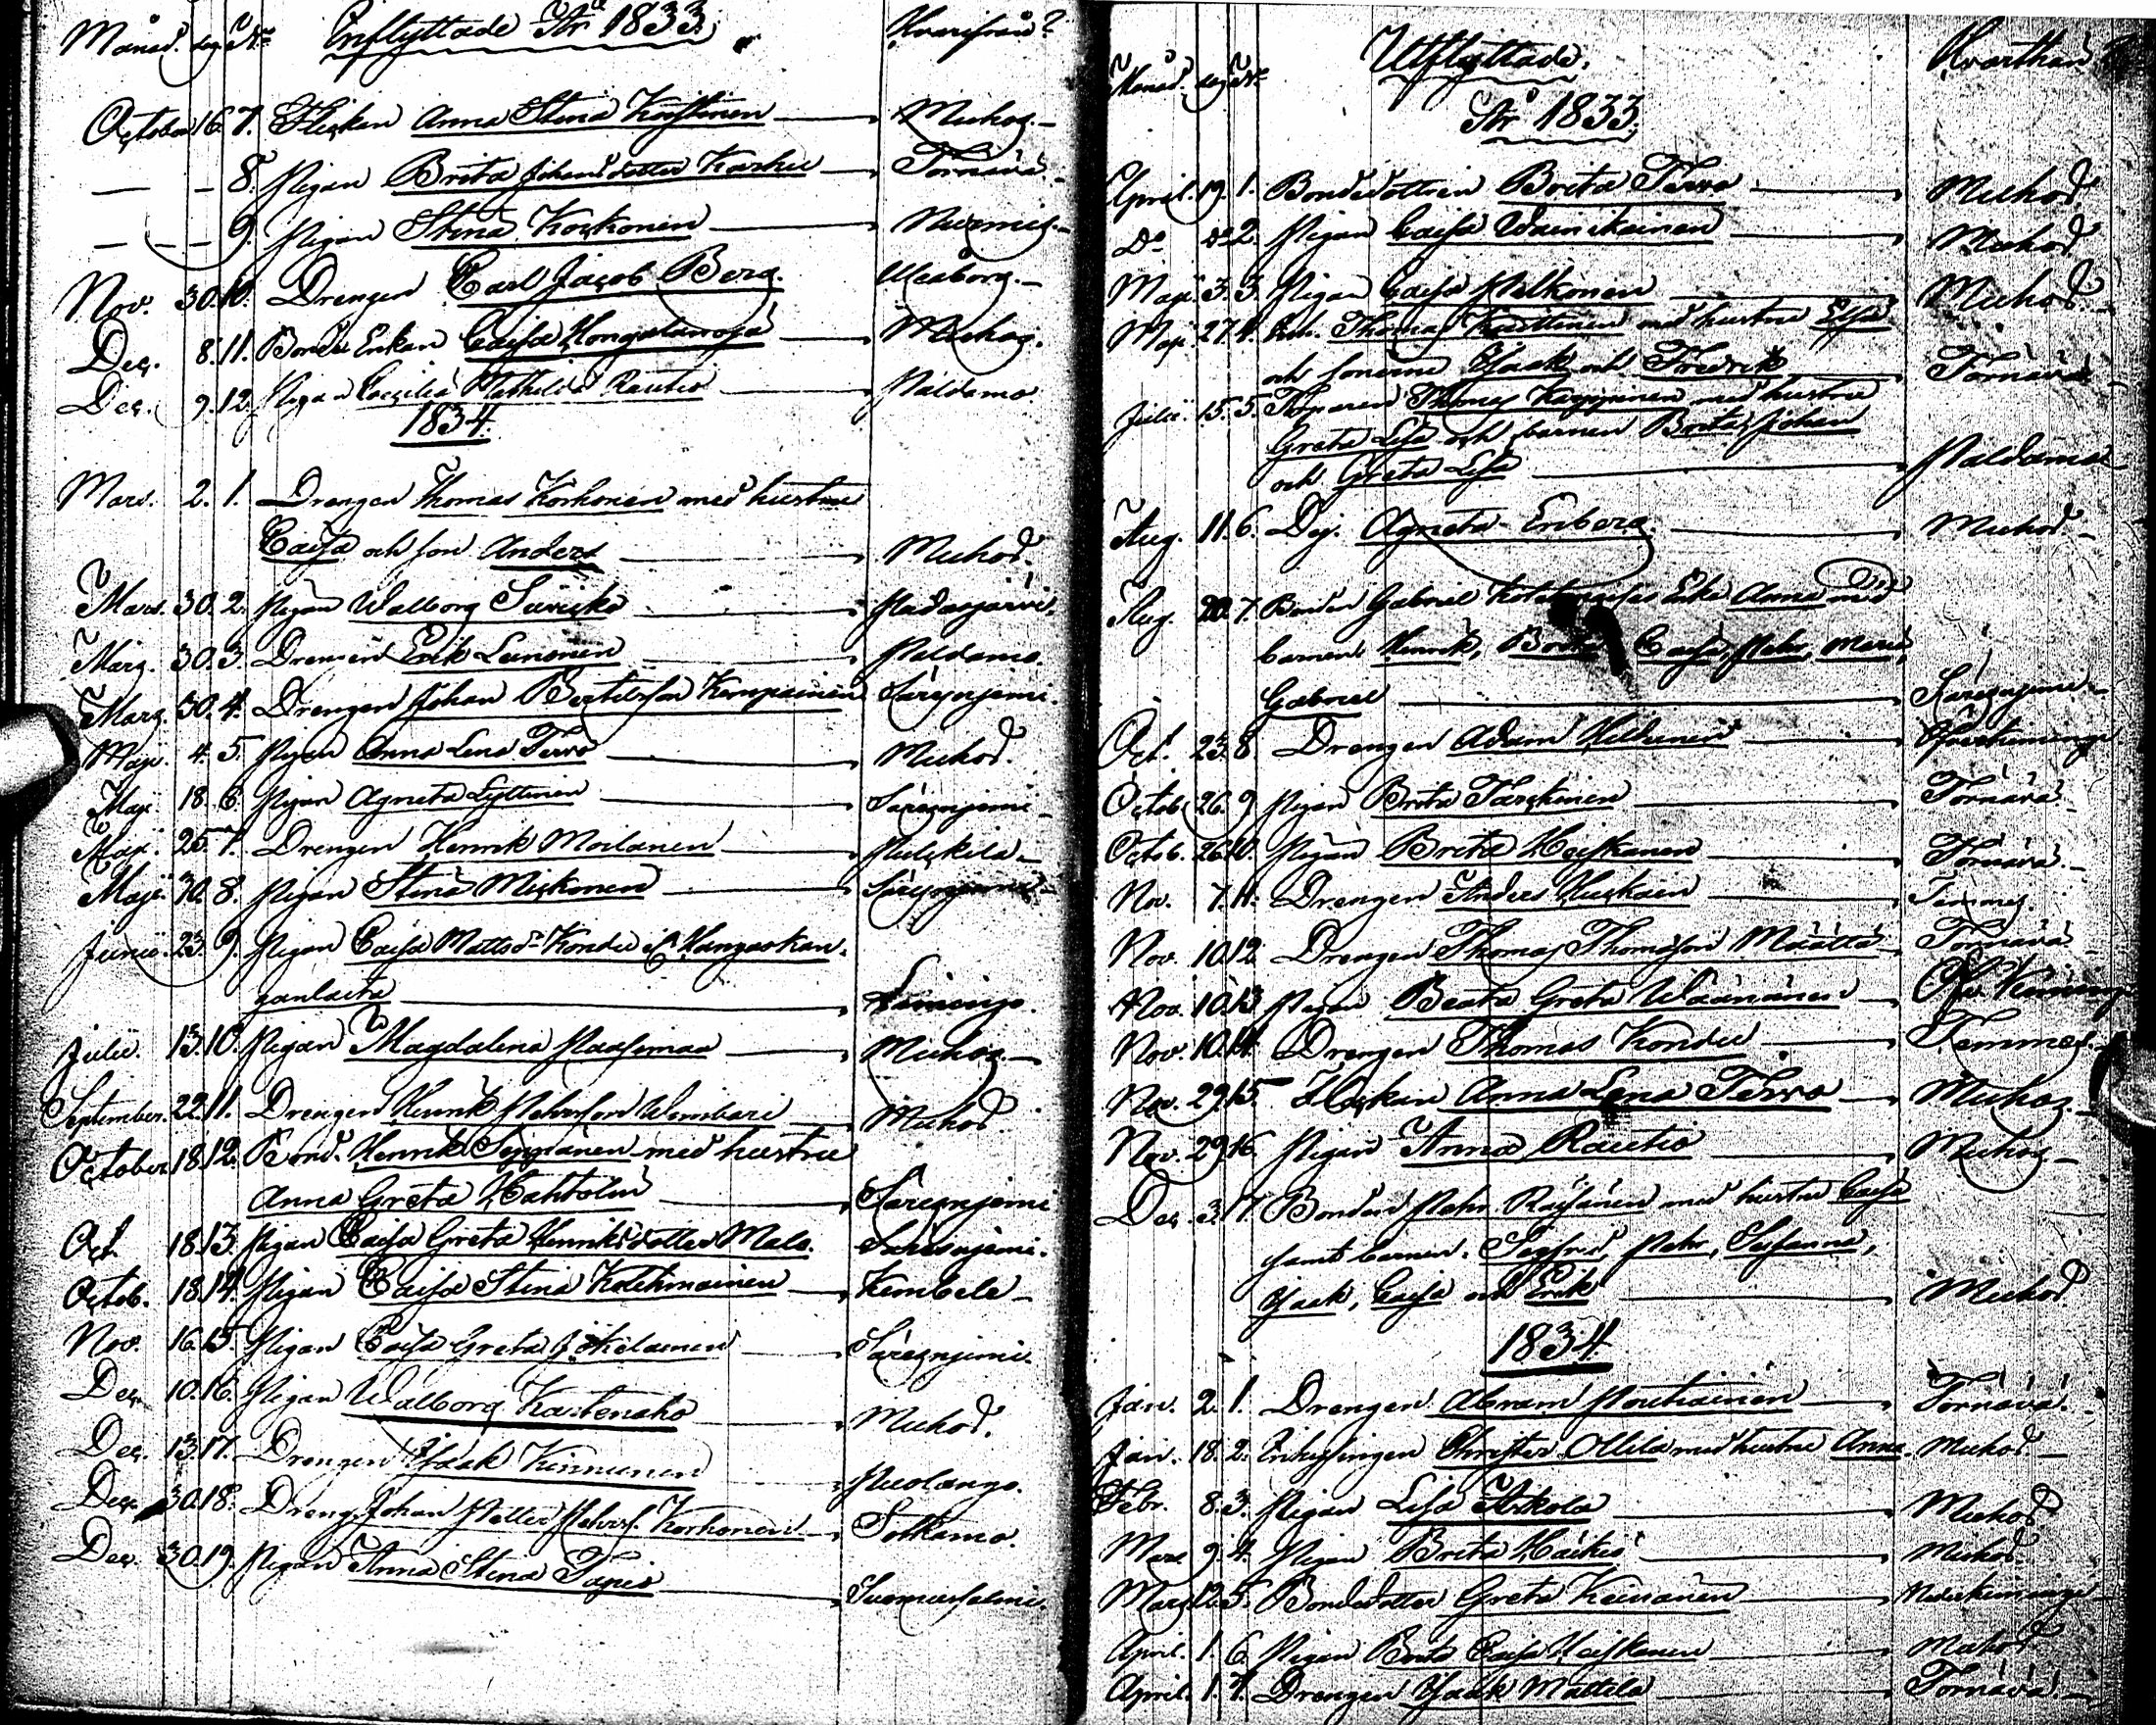 Månad. dag. No Inflyttade År 1833. Hvarifrån?
October 16. 7. Flickan Anna Stina Korstinen Muhos.
8. Pigan Brita Johansdotter Karhu Tornävä
9. Pigan Stina Koskonen Nurmis
Nov. 30. 10. Drengen Carl Jacob Berg Uleåborg.
Dec. 8. 11. Bonde Enkan Caisa Muhos.
Dec. 9. 12. Pigan Caecilia Mathilda Rautio Paldamo
1834.
Mars. 2. 1. Drengen Thomas Korhonen med hustru
Caisa och son Anders Muhos.
Mars. 30. 2. Pigan Walborg Pudasjärvi.
Mars. 30. 3. Drengen Erik Leinonen Paldamo.
Mars. 30. 4. Drengen Johan Bertilsson Kemppainen Säresnjemi.
Maji. 4. 5. Pigan Anna Lena Tervo Muhos.
Maji. 18. 6. Pigan Agneta Lyttinen Säresnjemi
Maji. 25. 7. Drengen Henrik Moilanen Pulckila
Maji. 30. 8. Pigan Stina Mickonen Säresnjemi
Junii. 23. 9. Pigan Caisa Mattsdr Kondu
Limingo.
Julii. 13. 10. Pigan Magdalena Muhos
September. 22. 11. Drengen Henrik Pehrsson Muhos
October 18. 12. Bond. Henrik Seppänen med hustru
Anna Greta Säresnjemi
Oct. 18. 13. Pigan Caisa Greta Henriksdotter Malo. Säresnjemi.
Octob. 18. 14. Pigan Caisa Stina Kembele
Nov. 16. 15. Pigan Caisa Greta Jokelainen Säresnjemi.
Dec. 10. 16. Pigan Walborg Muhos.
Dec. 13. 17. Drengen Isaak Kinnunen Puolango.
Dec. 30. 18. Dreng. Johan Petter Pehrss. Korhonen Sotkamo.
Dec. 30. 19. Pigan Anna Stina Tapio Suomussalmi.
Månad. dag. No Utflyttade. Hvarthän
År 1833.
April. 19. 1. Bondedottren Brita Tervo Muhos.
Do do 2. Pigan Caisa Wainikainen Muhos
Maji. 3. 3. Pigan Caisa Pelkonen Muhos.
Maji. 27. 4. Thomas Kurttinen med hustru Elsa
och sönerna Isaak och Fredrik Tornävä
Julii. 15. 5. Torparen Thomas Karppinen med hustru
Greta Lisa och barnen Brita, Johan
och Greta Lisa Paldamo
Aug. 11. 6. Dej. Agneta Enberg Muhos.
Aug. 20. 7. Bonden Gabriel Enka Anna med
barnen Henrik, Brita Caisa, Pehr, Maria,
Gabriel Säresnjemi
Oct. 23. 8 Drengen Adam
Octob. 26. 9 Pigan Brita Tornävä
Octob. 26. 10. Pigan Brita Heiskanen Tornävä
Nov. 7. 11. Drengen Anders Temmes.
Nov. 10. 12. Drengen Thomas Thomasson Määttä Tornävä
Nov. 10. 13 Pigan Beata Greta Wäänänen Öfv. Kiminge
Nov. 10. 14. Drengen Thomas Kondu Temmes.
Nov. 29. 15. Flickan Anna Lena Tervo Muhos
Nov. 29. 16. Pigan Anna Rautio Muhos
Dec. 3. 17. Bonden Pehr Räisänen med hustru Caisa
samt barnen. Sigfrid, Pehr, Susanna,
Isaak, Caisa och Erik Muhos
1834
Jan. 2. 1. Drengen Abram Poutiainen Tornävä.
Jan. 18. 2. Inhysingen Christer Ollila med hustru Anna. Muhos
Febr. 8. 3. Pigan Lisa Muhos
Mars. 9. 4. Pigan Brita Haikio Muhos.
Mars. 12. 5. Bondedotter Greta Keinänen
April. 1. 6. Pigan Brita Caisa Heiskanen Muhos
April. 1. 7. Drengen Isaak Mattila Tornävä.